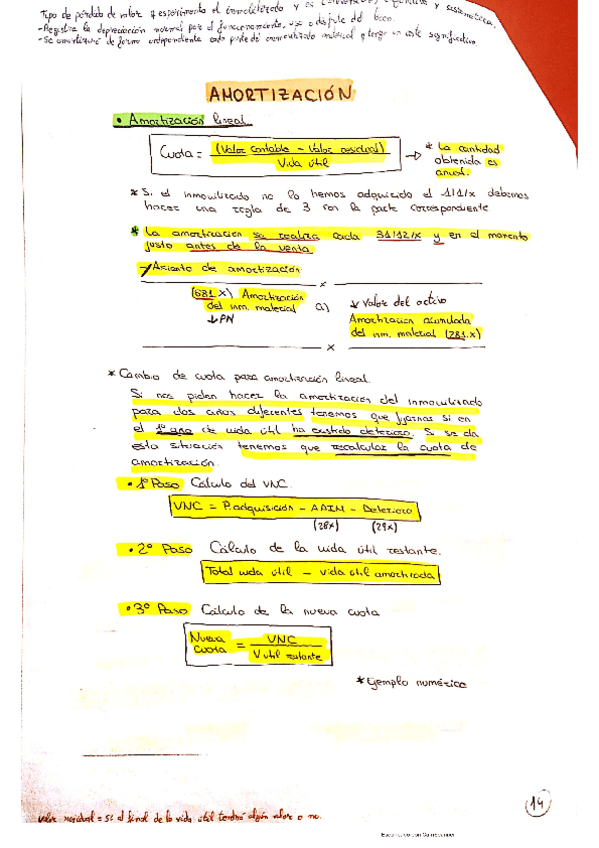 Tipo de pérdida de valor q experimenta el inmovilizado y es sistemática.
-Registra la depreciación normal por el funcionamiento, uso o disfrute del bien.
-Se amortizará de forma independiente cada parte del inmovilizado material q tenga un coste significativo.
AMORTIZACIÓN
• Amortización lineal
Cuota = (Valor contable - Valor residual) / Vida útil → * La cantidad
obtenida es
anual.
* Si el inmovilizado no lo hemos adquirido el 1/1/x debemos
hacer una regla de 3 con la parte correspondiente
* La amortización se realiza cada 31/12/x y en el momento
justo antes de la venta
Asiento de amortización
x
(681.X) Amortización
del inm. material
↓PN
a)
↓ Valor del activo
Amortización acumulada
del inm. material (281.x)
x
* Cambio de cuota para amortización lineal
Si nos piden hacer la amortización del inmovilizado
para dos años diferentes tenemos que fijarnos si en
el 1º año de vida útil ha existido deterioro. Si se da
esta situación tenemos que recalcular la cuota de
amortización.
• 1º Paso Cálculo del VNC.
VNC = P.adquisición - AAIM - Deterioro
(28x) (29x)
• 2º Paso Cálculo de la vida útil restante.
Total vida útil - vida útil amortizada
• 3º Paso Cálculo de la nueva cuota
Nueva cuota = VNC / V útil restante
* Ejemplo numérico
14
Valor residual = Si al final de la vida útil tendrá algún valor o no.
Escaneado con CamScanner